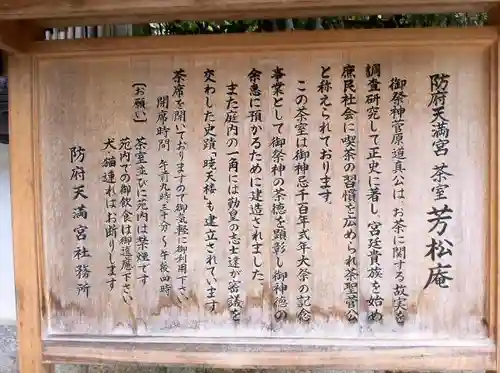 防府天満宮 茶室 芳松庵
御祭神菅原道真公は、お茶に関する故実を
調査研究して正史に著し、宮廷貴族を始め
庶民社会に喫茶の習慣を広められ茶聖菅公
と称えられております。
この茶室は御神忌千百年式年大祭の記念
事業として御祭神の茶徳を顕彰し御神徳の
余恵に預かるために建造されました。
また庭内の一角には勤皇の志士達が密議を
交わした史蹟「暁天楼」も建立されています
茶席を開いておりますので御気軽に御利用下さい
開席時間 午前九時三十分～午後四時
【お願い】茶室並びに苑内は禁煙です
苑内での御飲食は御遠慮下さい
犬・猫連れはお断りします
防府天満宮社務所